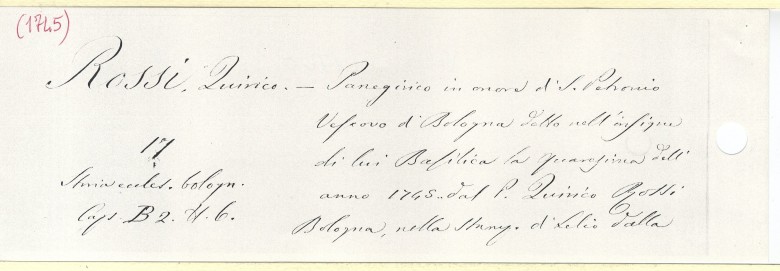 (1745)
Rossi, Quirico. — Panegirico in onore di S. Petronio
Vescovo di Bologna detto nell'insigne
17
di lui Basilica la quaresima dell'
Storia eccles. bologn.
anno 1745. dal P. Quirico Rossi
Caps B 2. N. 6.
Bologna, nella Stamp. di Lelio dalla